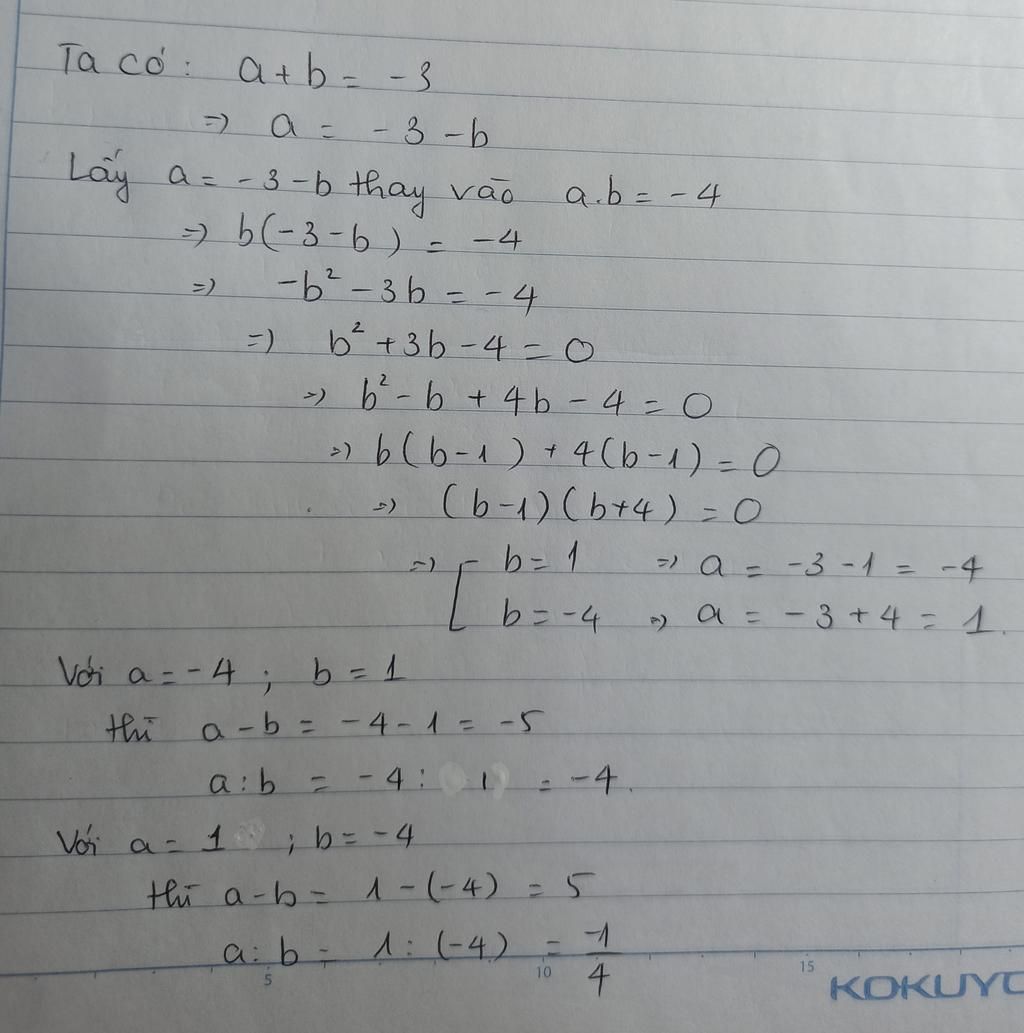 Ta có: a + b = -3
=> a = -3 - b
Lấy a = -3 - b thay vào a.b = -4
=> b(-3 - b) = -4
=> -b² - 3b = -4
=> b² + 3b - 4 = 0
=> b² - b + 4b - 4 = 0
=> b(b - 1) + 4(b - 1) = 0
=> (b - 1)(b + 4) = 0
=> [ b = 1 => a = -3 - 1 = -4
b = -4 => a = -3 + 4 = 1.
Với a = -4 ; b = 1
thì a - b = -4 - 1 = -5
a : b = -4 : 1 = -4.
Với a = 1 ; b = -4
thì a - b = 1 - (-4) = 5
a : b = 1 : (-4) = -1/4
5 10 15
KOKUYO